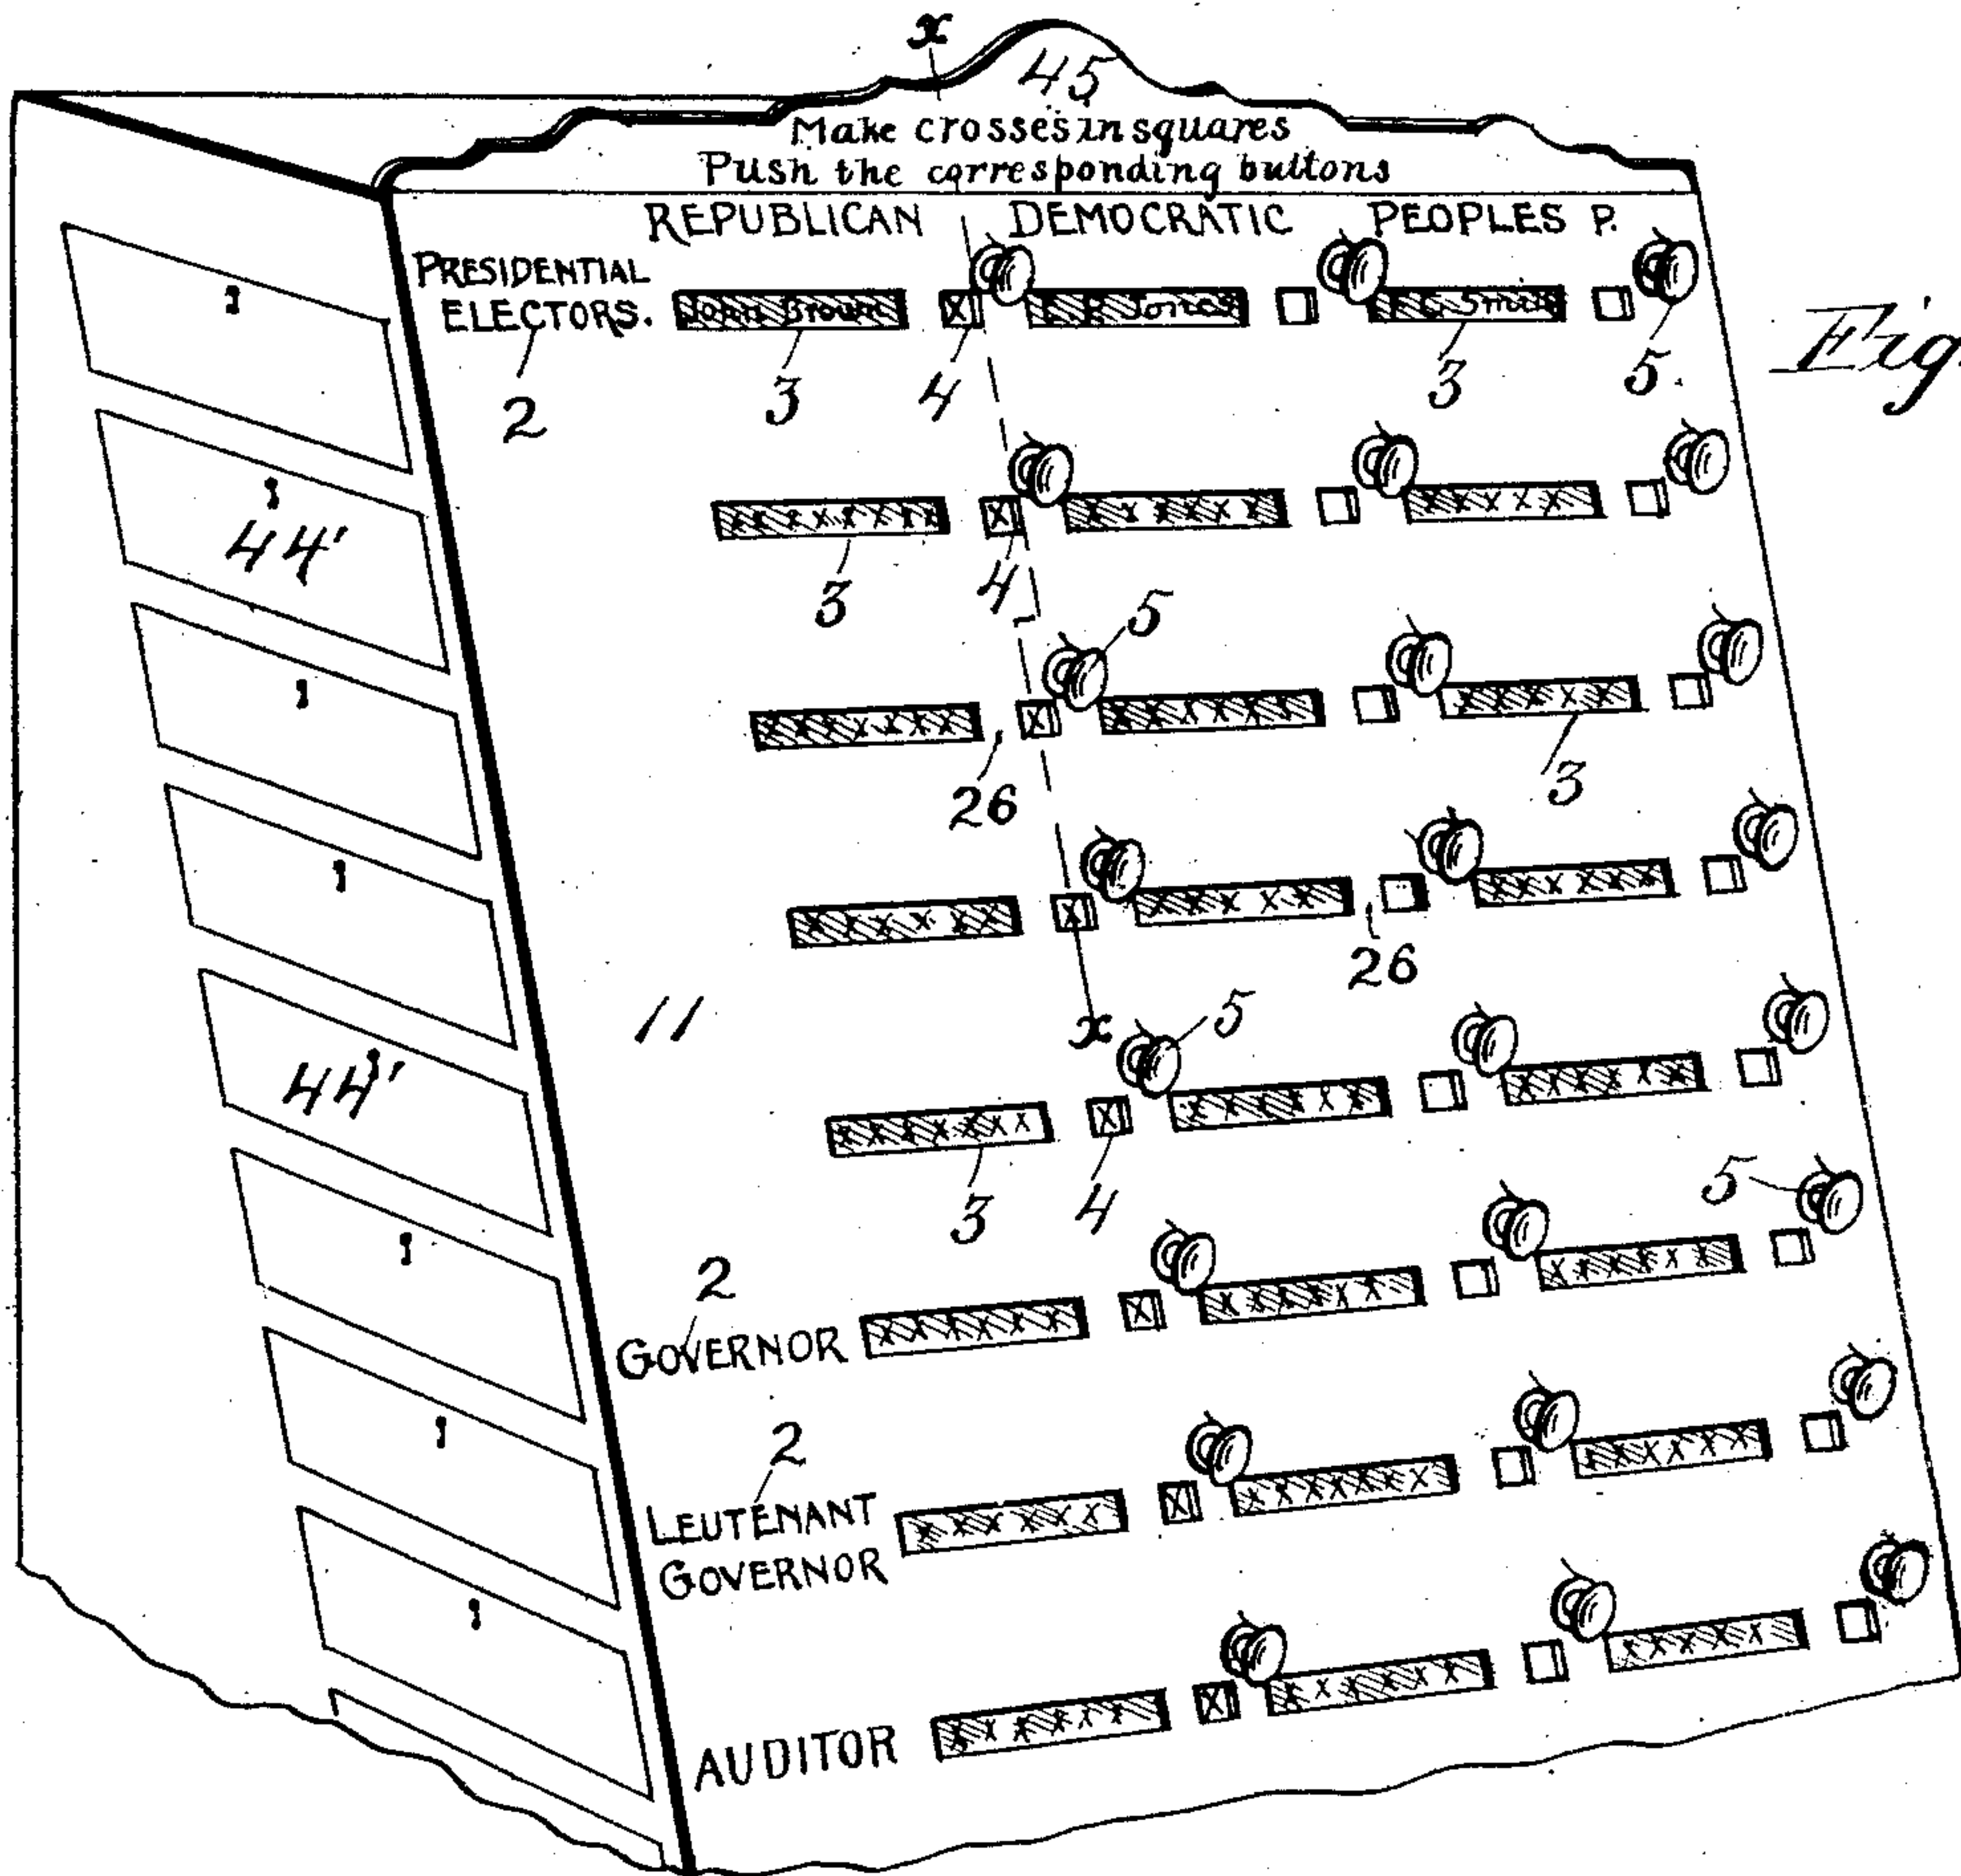 x
45
Make crosses in squares
Push the corresponding buttons
REPUBLICAN DEMOCRATIC PEOPLES P.
PRESIDENTIAL
ELECTORS.
John Brown Jones Smith
Fig.
2 3 4 3 5
44'
3 4
5
26 3
26
11
x 5
44'
3 4 5
2
GOVERNOR
2
LEUTENANT
GOVERNOR
AUDITOR